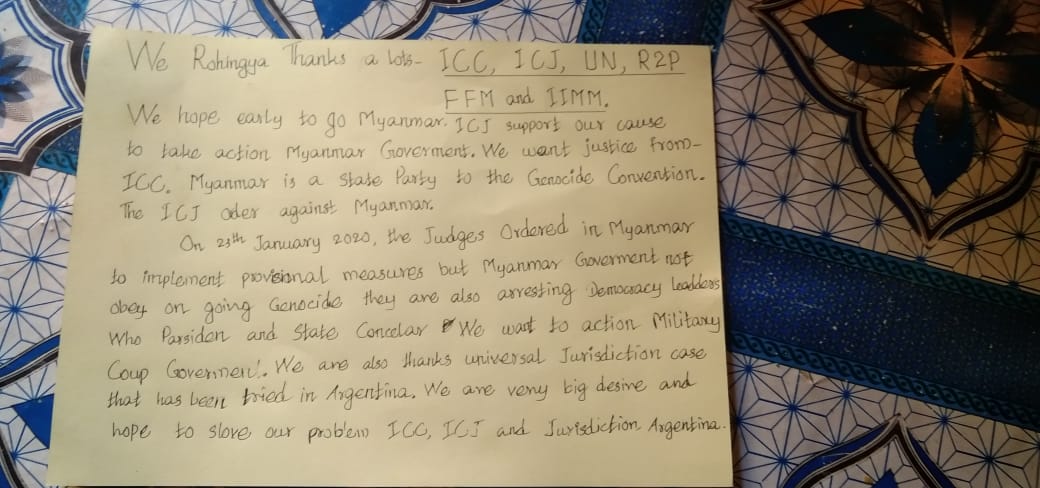 We Rohingya Thanks a lots- ICC, ICJ, UN, R2P
FFM and IIMM.
We hope early to go Myanmar. ICJ support our cause
to take action Myanmar Goverment. We want justice from-
ICC. Myanmar is a State Party to the Genocide Convention.
The ICJ oder against Myanmar.
On 23th January 2020, the Judges Ordered in Myanmar
to implement provisional measures but Myanmar Goverment not
obey on going Genocide they are also arresting Democracy leadders
Who Parsiden and State Concelar We want to action Military
Coup Goverment. We are also thanks universal Jurisdiction case
that has been tried in Argentina. We are veny big desine and
hope to slove our problem ICC, ICJ and Jurisdiction Argentina.